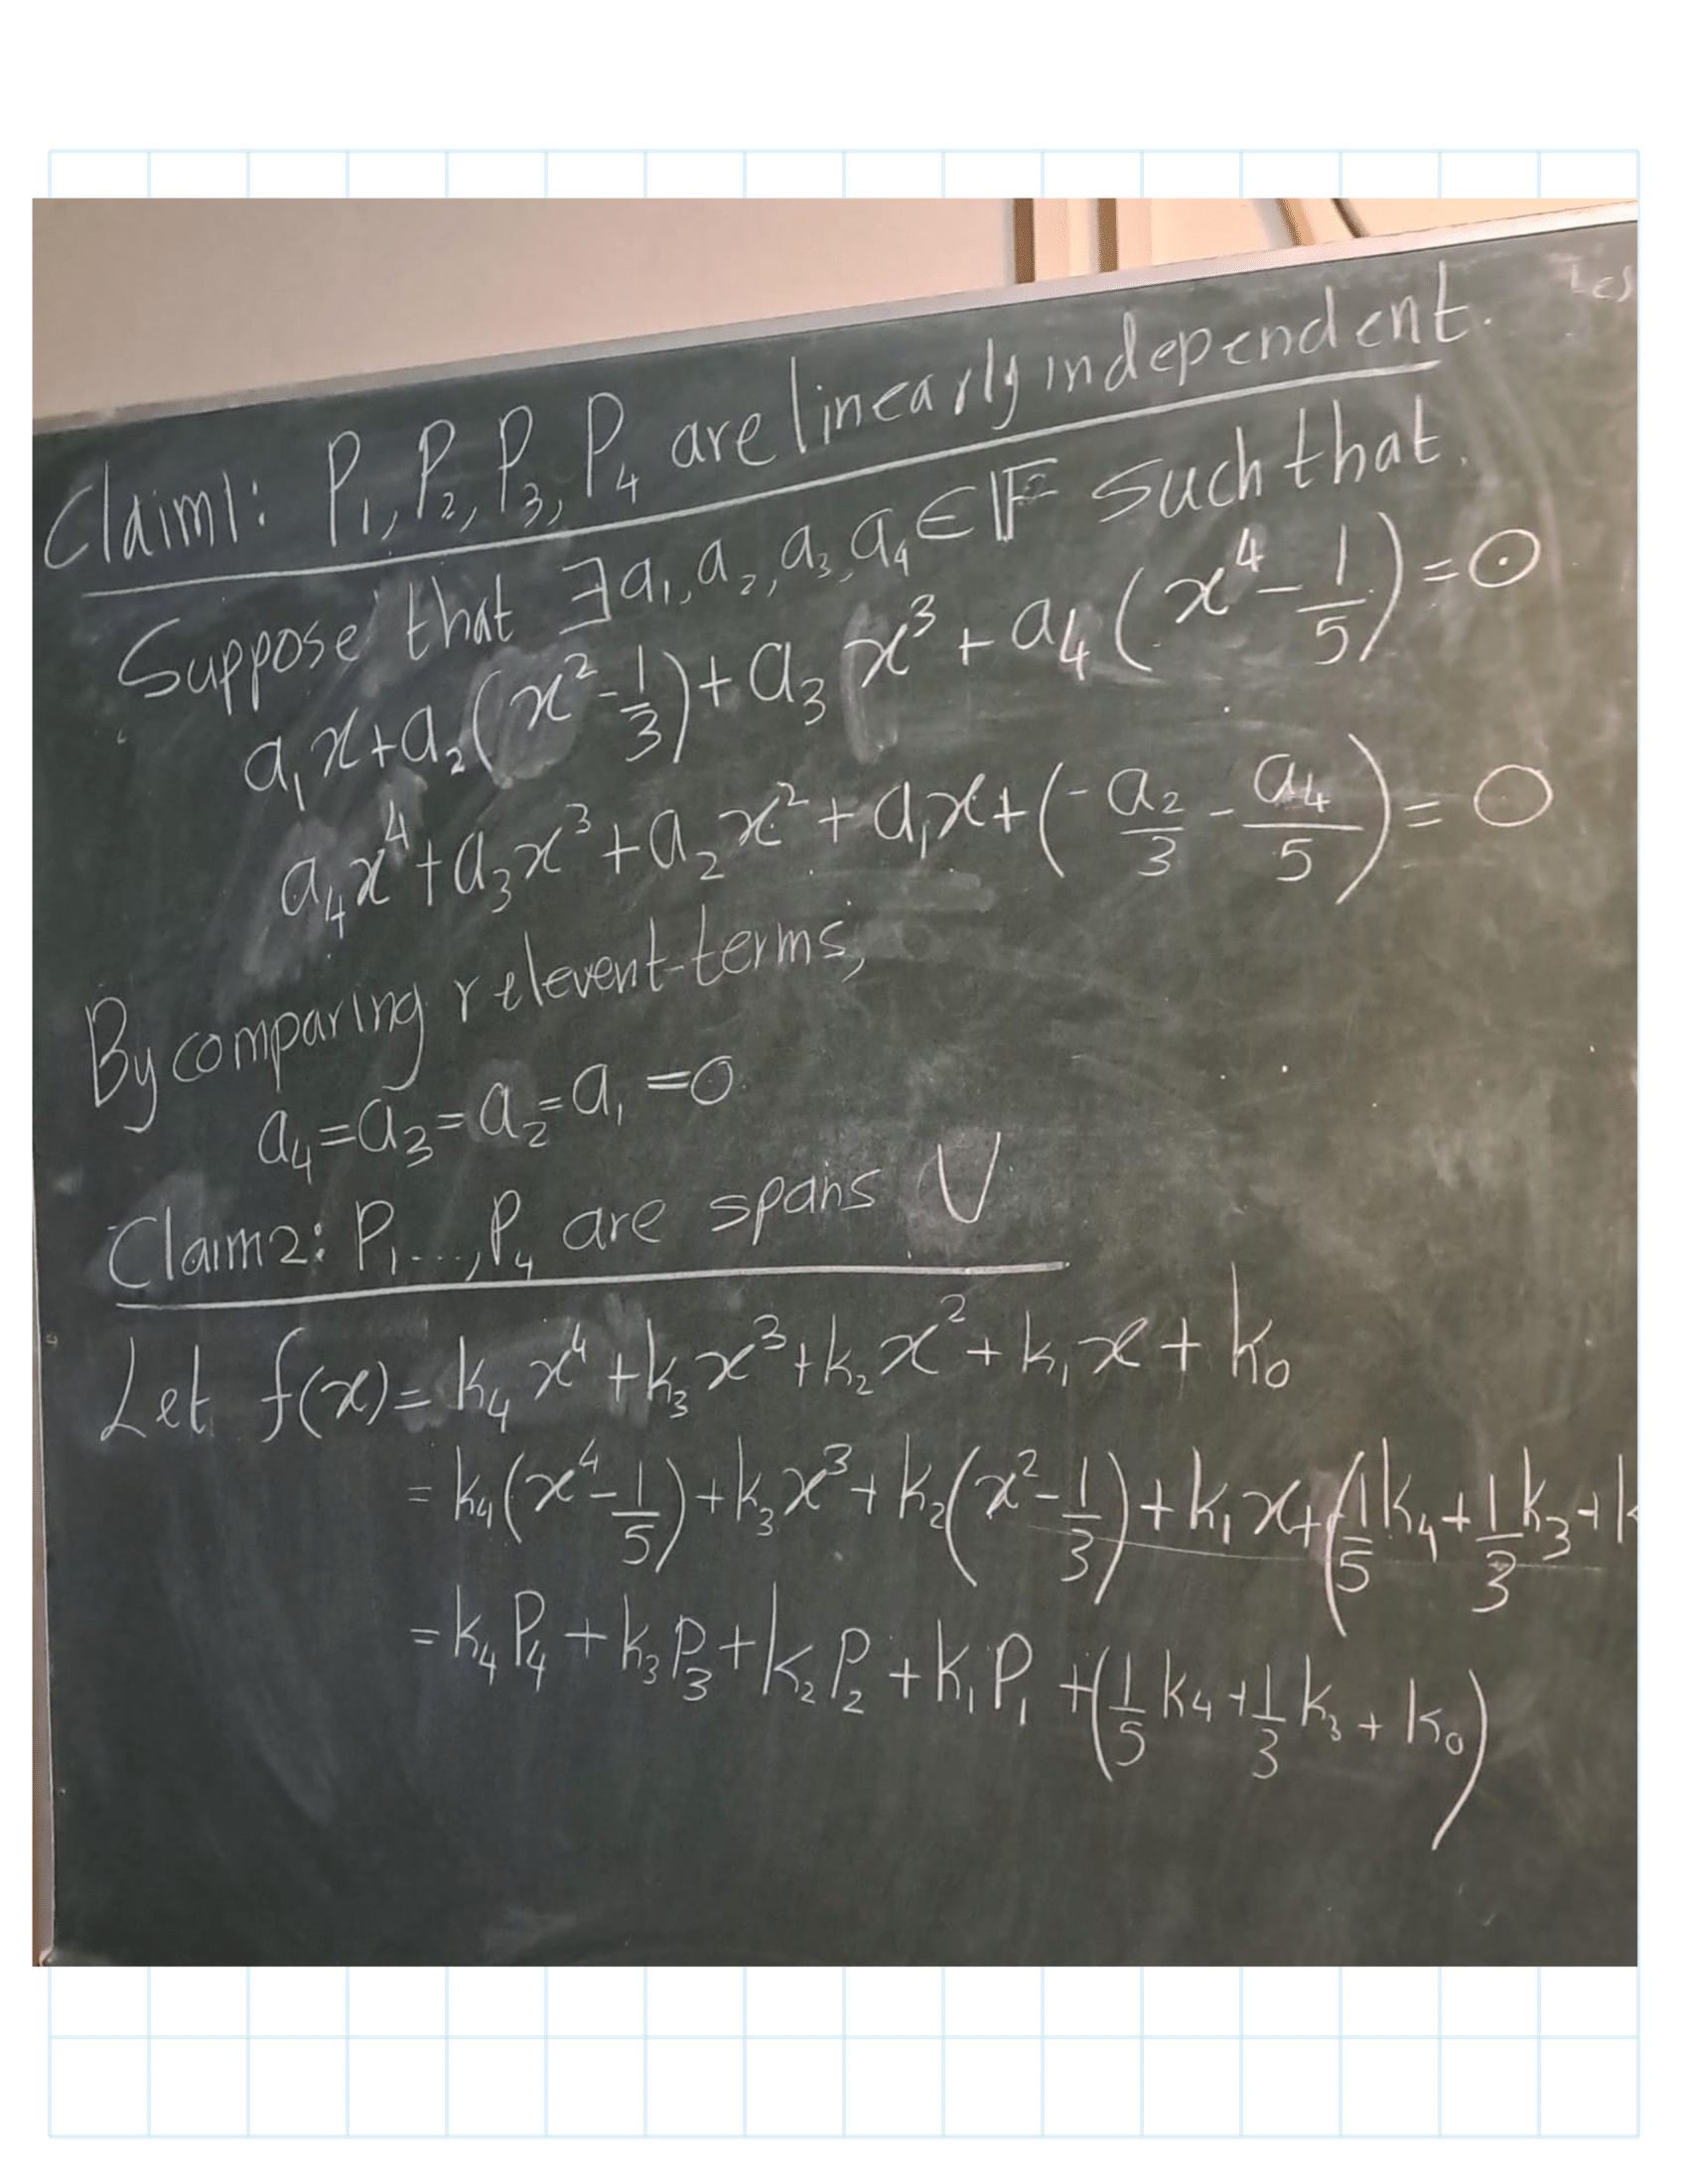 Claim1: P₁, P₂, P₃, P₄ are linearly independent.
Suppose that ∃a₁, a₂, a₃, a₄ ∈ 𝔽 such that.
a₁x+a₂(x²-1/3)+a₃x³+a₄(x⁴-1/5)=0
a₄x⁴+a₃x³+a₂x²+a₁x+(-a₂/3-a₄/5)=0
By comparing relevent terms,
a₄=a₃=a₂=a₁=0
Claim2: P₁...,P₄ are spans V
Let f(x)=k₄x⁴+k₃x³+k₂x²+k₁x+k₀
=k₄(x⁴-1/5)+k₃x³+k₂(x²-1/3)+k₁x+(1/5k₄+1/3k₃+k
=k₄P₄+k₃P₃+k₂P₂+k₁P₁+(1/5k₄+1/3k₃+k₀)